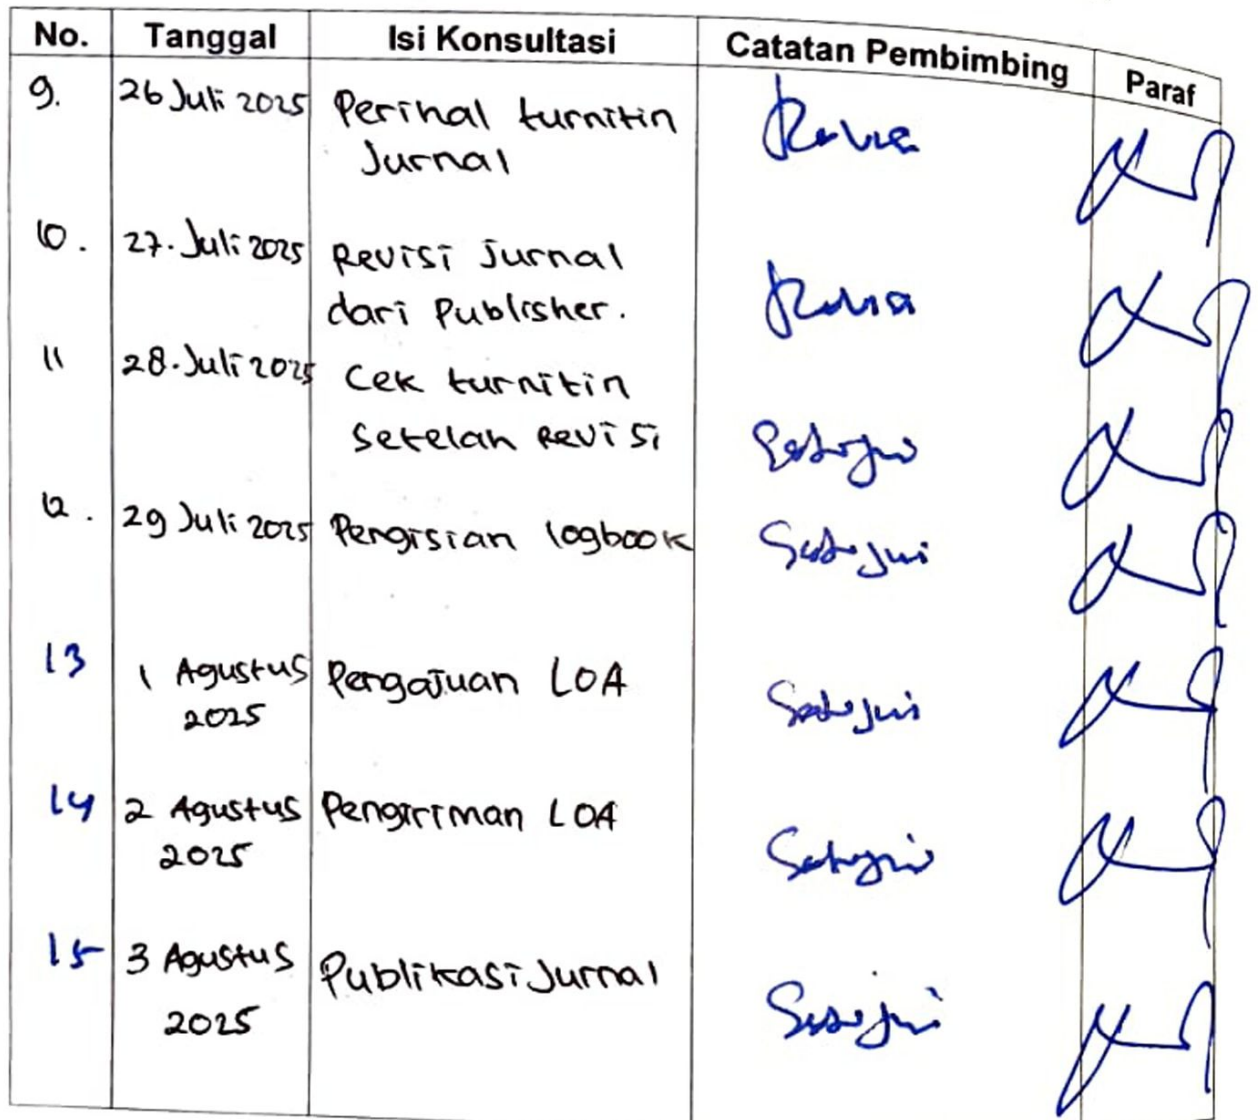 No. Tanggal Isi Konsultasi Catatan Pembimbing Paraf
9. 26 Juli 2025 Perihal turnitin
Jurnal
10. 27. Juli 2025 Revisi jurnal
dari Publisher.
11 28. Juli 2025 Cek turnitin
Setelah Revisi Setujui
12. 29 Juli 2025 Pengisian logbook Setujui
13 1 Agustus Pengajuan LOA
2025 Setujui
14 2 Agustus Pengiriman LOA
2025 Setujui
15 3 Agustus Publikasi Jurnal
2025 Setujui